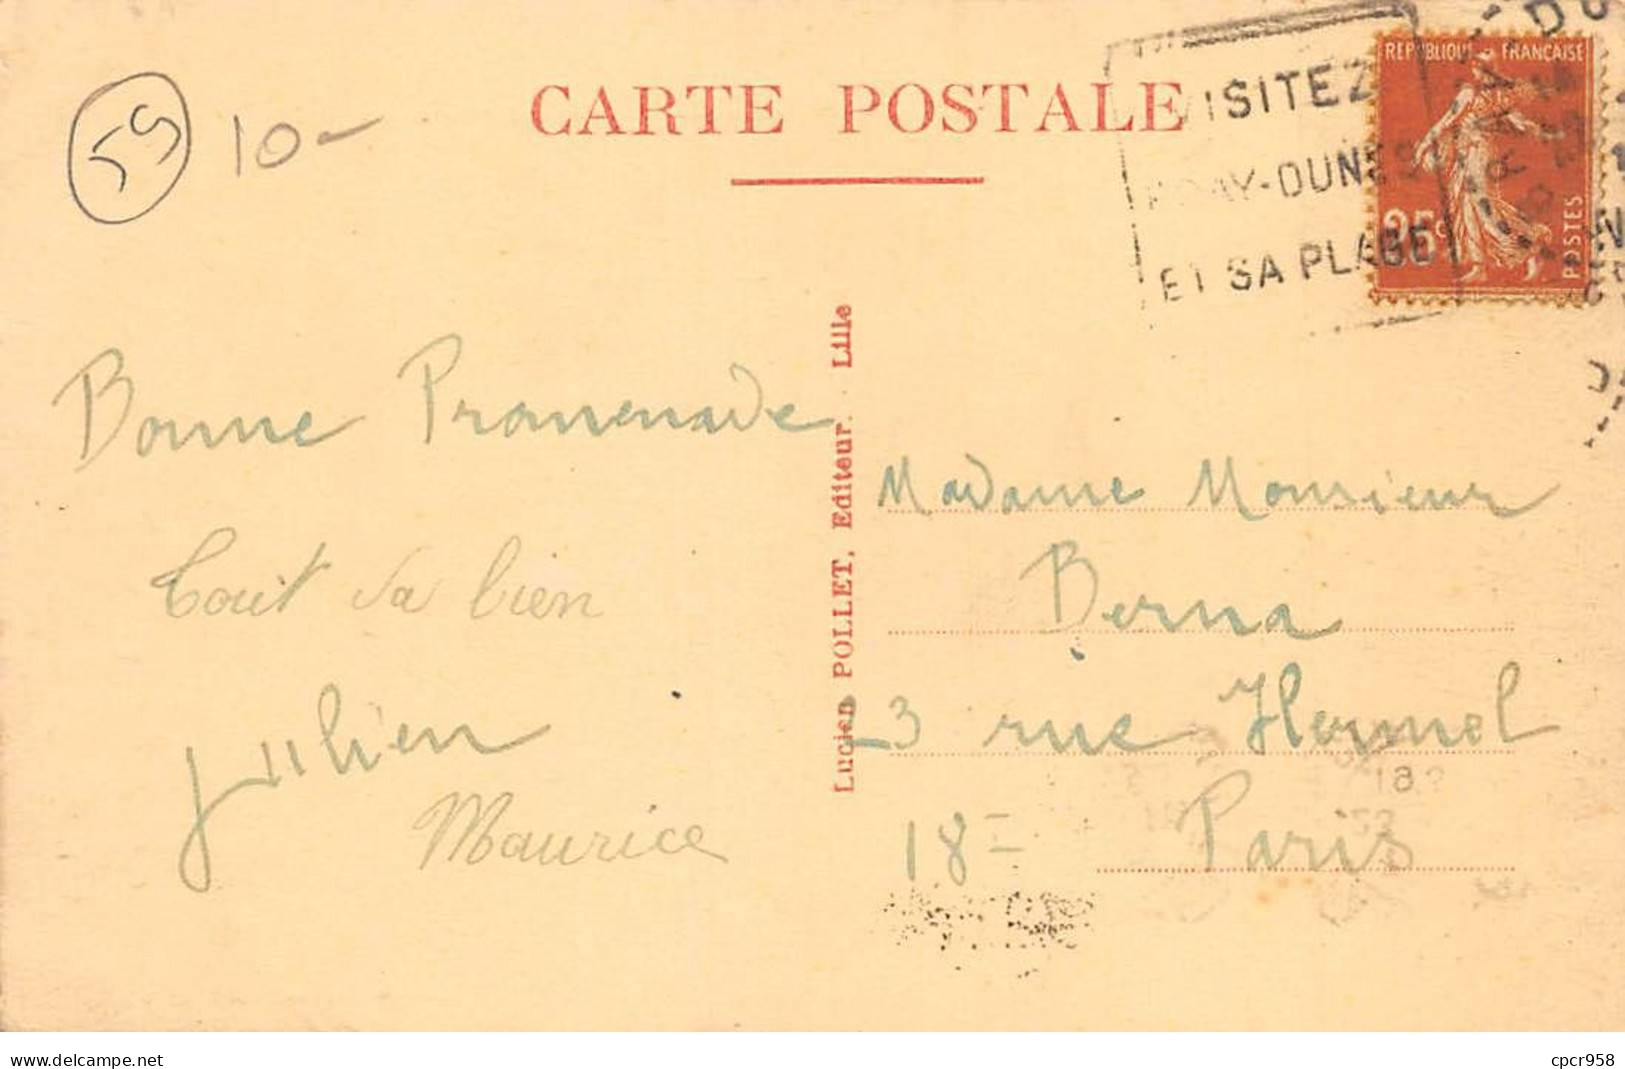 59
10-
CARTE POSTALE
VISITEZ
BRAY-DUNES
ET SA PLAGE
REPUBLIQUE FRANÇAISE
25c
POSTES
Bonne Promenade
Tout va bien
Julien
Maurice
Lucien POLLET, Editeur. Lille
Madame Monsieur
Berna
23 rue Hermel
18- Paris
www.delcampe.net
cpcr958